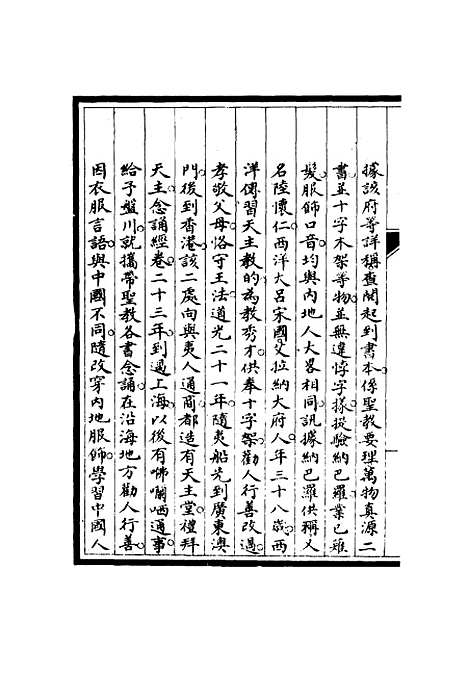 據該府等詳稱查閱起到書本係聖教要理萬物真源二
書並十字木架等物並無違悖字樣提驗納巴羅業已薙
髮服飾口音均與內地人大畧相同訊據納巴羅供稱又
名陸懷仁西洋大呂宋國艾拉納大府人年三十八歲西
洋傳習天主教的為教秀才供奉十字架勸人行善改過
孝敬父母恪守王法道光二十一年隨夷船先到廣東澳
門後到香港該二處向與夷人通商都造有天主堂禮拜
天主念誦經卷二十三年到過上海以後有咈囒哂通事
給予盤川就攜帶聖教各書念誦在沿海地方勸人行善
因衣服言語與中國不同隨改穿內地服飾學習中國人